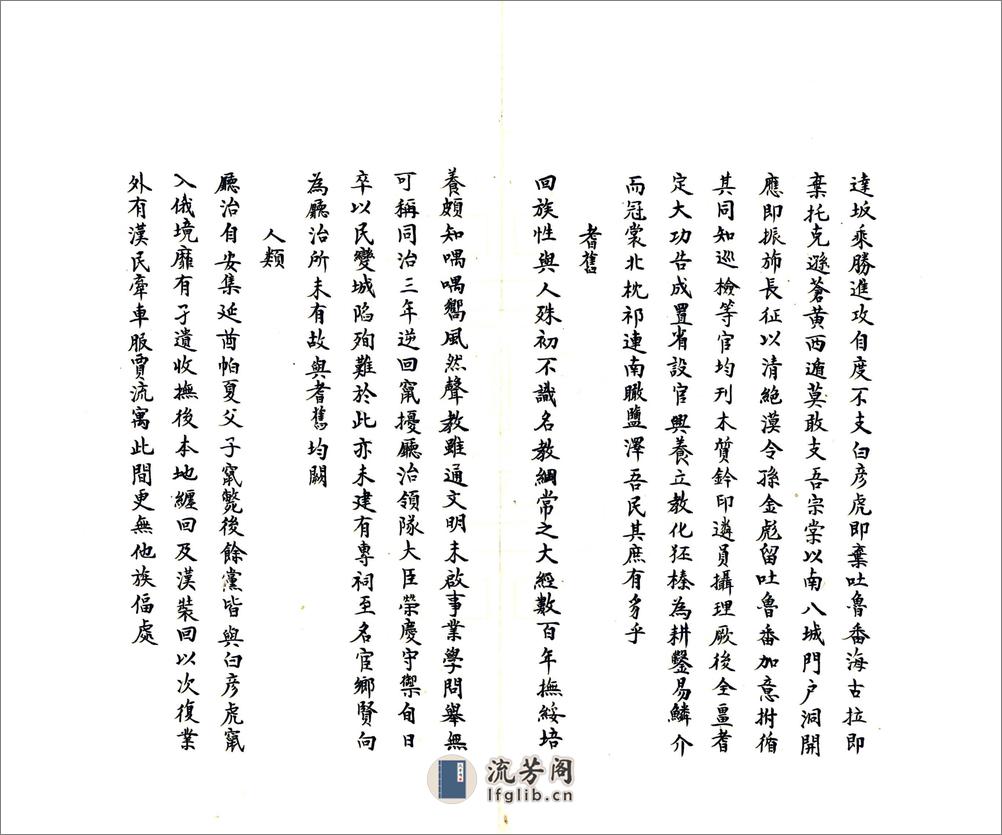 達坂乘勝進攻自度不支白彥虎即棄吐魯番海古拉即
棄托克遜蒼黃西遁莫敢支吾宗棠以南八城門戶洞開
應即振斾長征以清絕漠令孫金彪留吐魯番加意拊循
其同知巡檢等官均刊木質鈐印遴員攝理厥後全畺耆
定大功告成置省設官興養立教化狉榛為耕鑿易鱗介
而冠裳北枕祁連南瞰鹽澤吾民其庶有豸乎
耆舊
回族性與人殊初不識名教綱常之大經數百年撫綏培
養頗知喁喁嚮風然聲教雖通文明未啟事業學問舉無
可稱同治三年逆回竄擾廳治領隊大臣榮慶守禦旬日
卒以民變城陷殉難於此亦未建有專祠至名宦鄉賢向
為廳治所未有故與耆舊均闕
人類
廳治自安集延酋帕夏父子竄斃後餘黨皆與白彥虎竄
入俄境靡有孑遺收撫後本地纏回及漢裝回以次復業
外有漢民牽車服賈流寓此間更無他族偪處
流芳阁
lfglib.cn